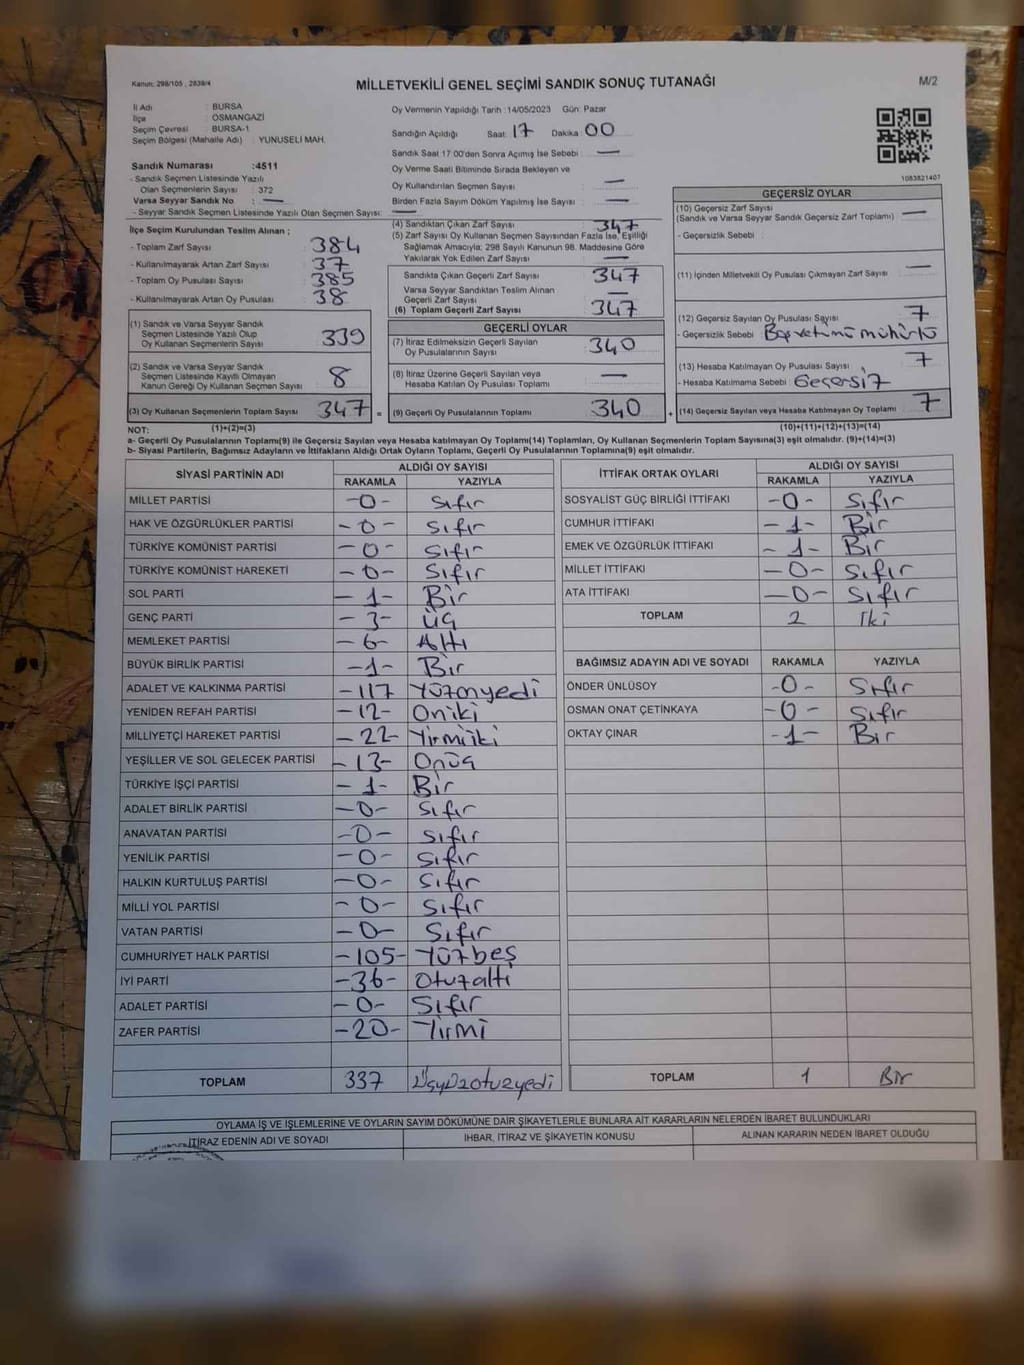 Kanun: 298/105 , 2839/4
MİLLETVEKİLİ GENEL SEÇİMİ SANDIK SONUÇ TUTANAĞI
M/2
İl Adı : BURSA
İlçe : OSMANGAZİ
Seçim Çevresi : BURSA-1
Seçim Bölgesi (Mahalle Adı) : YUNUSELİ MAH.
Sandık Numarası :4511
- Sandık Seçmen Listesinde Yazılı
Olan Seçmenlerin Sayısı : 372
Varsa Seyyar Sandık No : —
- Seyyar Sandık Seçmen Listesinde Yazılı Olan Seçmen Sayısı: —
Oy Vermenin Yapıldığı Tarih : 14/05/2023 Gün: Pazar
Sandığın Açıldığı Saat 17 Dakika 00
Sandık Saat 17 00'den Sonra Açılmış İse Sebebi : —
Oy Verme Saati Bitiminde Sırada Bekleyen ve
Oy Kullandırılan Seçmen Sayısı : —
Birden Fazla Sayım Döküm Yapılmış İse Sayısı : —
1083821401
İlçe Seçim Kurulundan Teslim Alınan ;
- Toplam Zarf Sayısı : 384
- Kullanılmayarak Artan Zarf Sayısı : 37
- Toplam Oy Pusulası Sayısı : 385
- Kullanılmayarak Artan Oy Pusulası : 38
(1) Sandık ve Varsa Seyyar Sandık
Seçmen Listesinde Yazılı Olup
Oy Kullanan Seçmenlerin Sayısı : 339
(2) Sandık ve Varsa Seyyar Sandık
Seçmen Listesinde Kayıtlı Olmayan
Kanun Gereği Oy Kullanan Seçmen Sayısı : 8
(3) Oy Kullanan Seçmenlerin Toplam Sayısı : 347 =
(4) Sandıktan Çıkan Zarf Sayısı : 347
(5) Zarf Sayısı Oy Kullanan Seçmen Sayısından Fazla İse, Eşitliği
Sağlamak Amacıyla; 298 Sayılı Kanunun 98. Maddesine Göre
Yakılarak Yok Edilen Zarf Sayısı : —
Sandıkta Çıkan Geçerli Zarf Sayısı : 347
Varsa Seyyar Sandıktan Teslim Alınan
Geçerli Zarf Sayısı : —
(6) Toplam Geçerli Zarf Sayısı : 347
GEÇERLİ OYLAR
(7) İtiraz Edilmeksizin Geçerli Sayılan
Oy Pusulalarının Sayısı : 340
(8) İtiraz Üzerine Geçerli Sayılan veya
Hesaba Katılan Oy Pusulası Toplamı : —
(9) Geçerli Oy Pusulalarının Toplamı : 340 +
GEÇERSİZ OYLAR
(10) Geçersiz Zarf Sayısı
(Sandık ve Varsa Seyyar Sandık Geçersiz Zarf Toplamı) : —
- Geçersizlik Sebebi :
(11) İçinden Milletvekili Oy Pusulası Çıkmayan Zarf Sayısı : —
(12) Geçersiz Sayılan Oy Pusulası Sayısı : 7
- Geçersizlik Sebebi :
(13) Hesaba Katılmayan Oy Pusulası Sayısı : 7
- Hesaba Katılmama Sebebi : Geçersiz
(14) Geçersiz Sayılan veya Hesaba Katılmayan Oy Toplamı : 7
NOT: (1)+(2)=(3)
(10)+(11)+(12)+(13)=(14)
a- Geçerli Oy Pusulalarının Toplamı(9) ile Geçersiz Sayılan veya Hesaba katılmayan Oy Toplamı(14) Toplamları, Oy Kullanan Seçmenlerin Toplam Sayısına(3) eşit olmalıdır. (9)+(14)=(3)
b- Siyasi Partilerin, Bağımsız Adayların ve İttifakların Aldığı Ortak Oyların Toplamı, Geçerli Oy Pusulalarının Toplamına(9) eşit olmalıdır.
SİYASİ PARTİNİN ADI ALDIĞI OY SAYISI
RAKAMLA YAZIYLA
MİLLET PARTİSİ -0- Sıfır
HAK VE ÖZGÜRLÜKLER PARTİSİ -0- Sıfır
TÜRKİYE KOMÜNİST PARTİSİ -0- Sıfır
TÜRKİYE KOMÜNİST HAREKETİ -0- Sıfır
SOL PARTİ -1- Bir
GENÇ PARTİ -3- Üç
MEMLEKET PARTİSİ -6- Altı
BÜYÜK BİRLİK PARTİSİ -1- Bir
ADALET VE KALKINMA PARTİSİ -117 Yüzonyedi
YENİDEN REFAH PARTİSİ -12- Oniki
MİLLİYETÇİ HAREKET PARTİSİ -22- Yirmiiki
YEŞİLLER VE SOL GELECEK PARTİSİ -13- Onüç
TÜRKİYE İŞÇİ PARTİSİ -1- Bir
ADALET BİRLİK PARTİSİ -0- Sıfır
ANAVATAN PARTİSİ -0- Sıfır
YENİLİK PARTİSİ -0- Sıfır
HALKIN KURTULUŞ PARTİSİ -0- Sıfır
MİLLİ YOL PARTİSİ -0- Sıfır
VATAN PARTİSİ -0- Sıfır
CUMHURİYET HALK PARTİSİ -105- Yüzbeş
İYİ PARTİ -36- Otuzaltı
ADALET PARTİSİ -0- Sıfır
ZAFER PARTİSİ -20- Yirmi
TOPLAM 337 Üçyüzotuzyedi
İTTİFAK ORTAK OYLARI ALDIĞI OY SAYISI
RAKAMLA YAZIYLA
SOSYALİST GÜÇ BİRLİĞİ İTTİFAKI -0- Sıfır
CUMHUR İTTİFAKI -1- Bir
EMEK VE ÖZGÜRLÜK İTTİFAKI -1- Bir
MİLLET İTTİFAKI -0- Sıfır
ATA İTTİFAKI -0- Sıfır
TOPLAM 2 İki
BAĞIMSIZ ADAYIN ADI VE SOYADI RAKAMLA YAZIYLA
ÖNDER ÜNLÜSOY -0- Sıfır
OSMAN ONAT ÇETİNKAYA -0- Sıfır
OKTAY ÇINAR -1- Bir
TOPLAM 1 Bir
OYLAMA İŞ VE İŞLEMLERİNE VE OYLARIN SAYIM DÖKÜMÜNE DAİR ŞİKAYETLERLE BUNLARA AİT KARARLARIN NELERDEN İBARET BULUNDUKLARI
İTİRAZ EDENİN ADI VE SOYADI İHBAR, İTİRAZ VE ŞİKAYETİN KONUSU ALINAN KARARIN NEDEN İBARET OLDUĞU